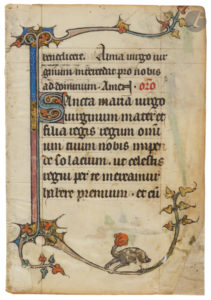 benedicere. Alma virgo vir
ginum intercede pro nobis
ad dominum. Amen. oro
Sancta maria virgo
virginum mater et
filia regis regum omni
um tuum nobis impe
de solacium. ut celestis
regni per te mereamur
habere premium. et cu